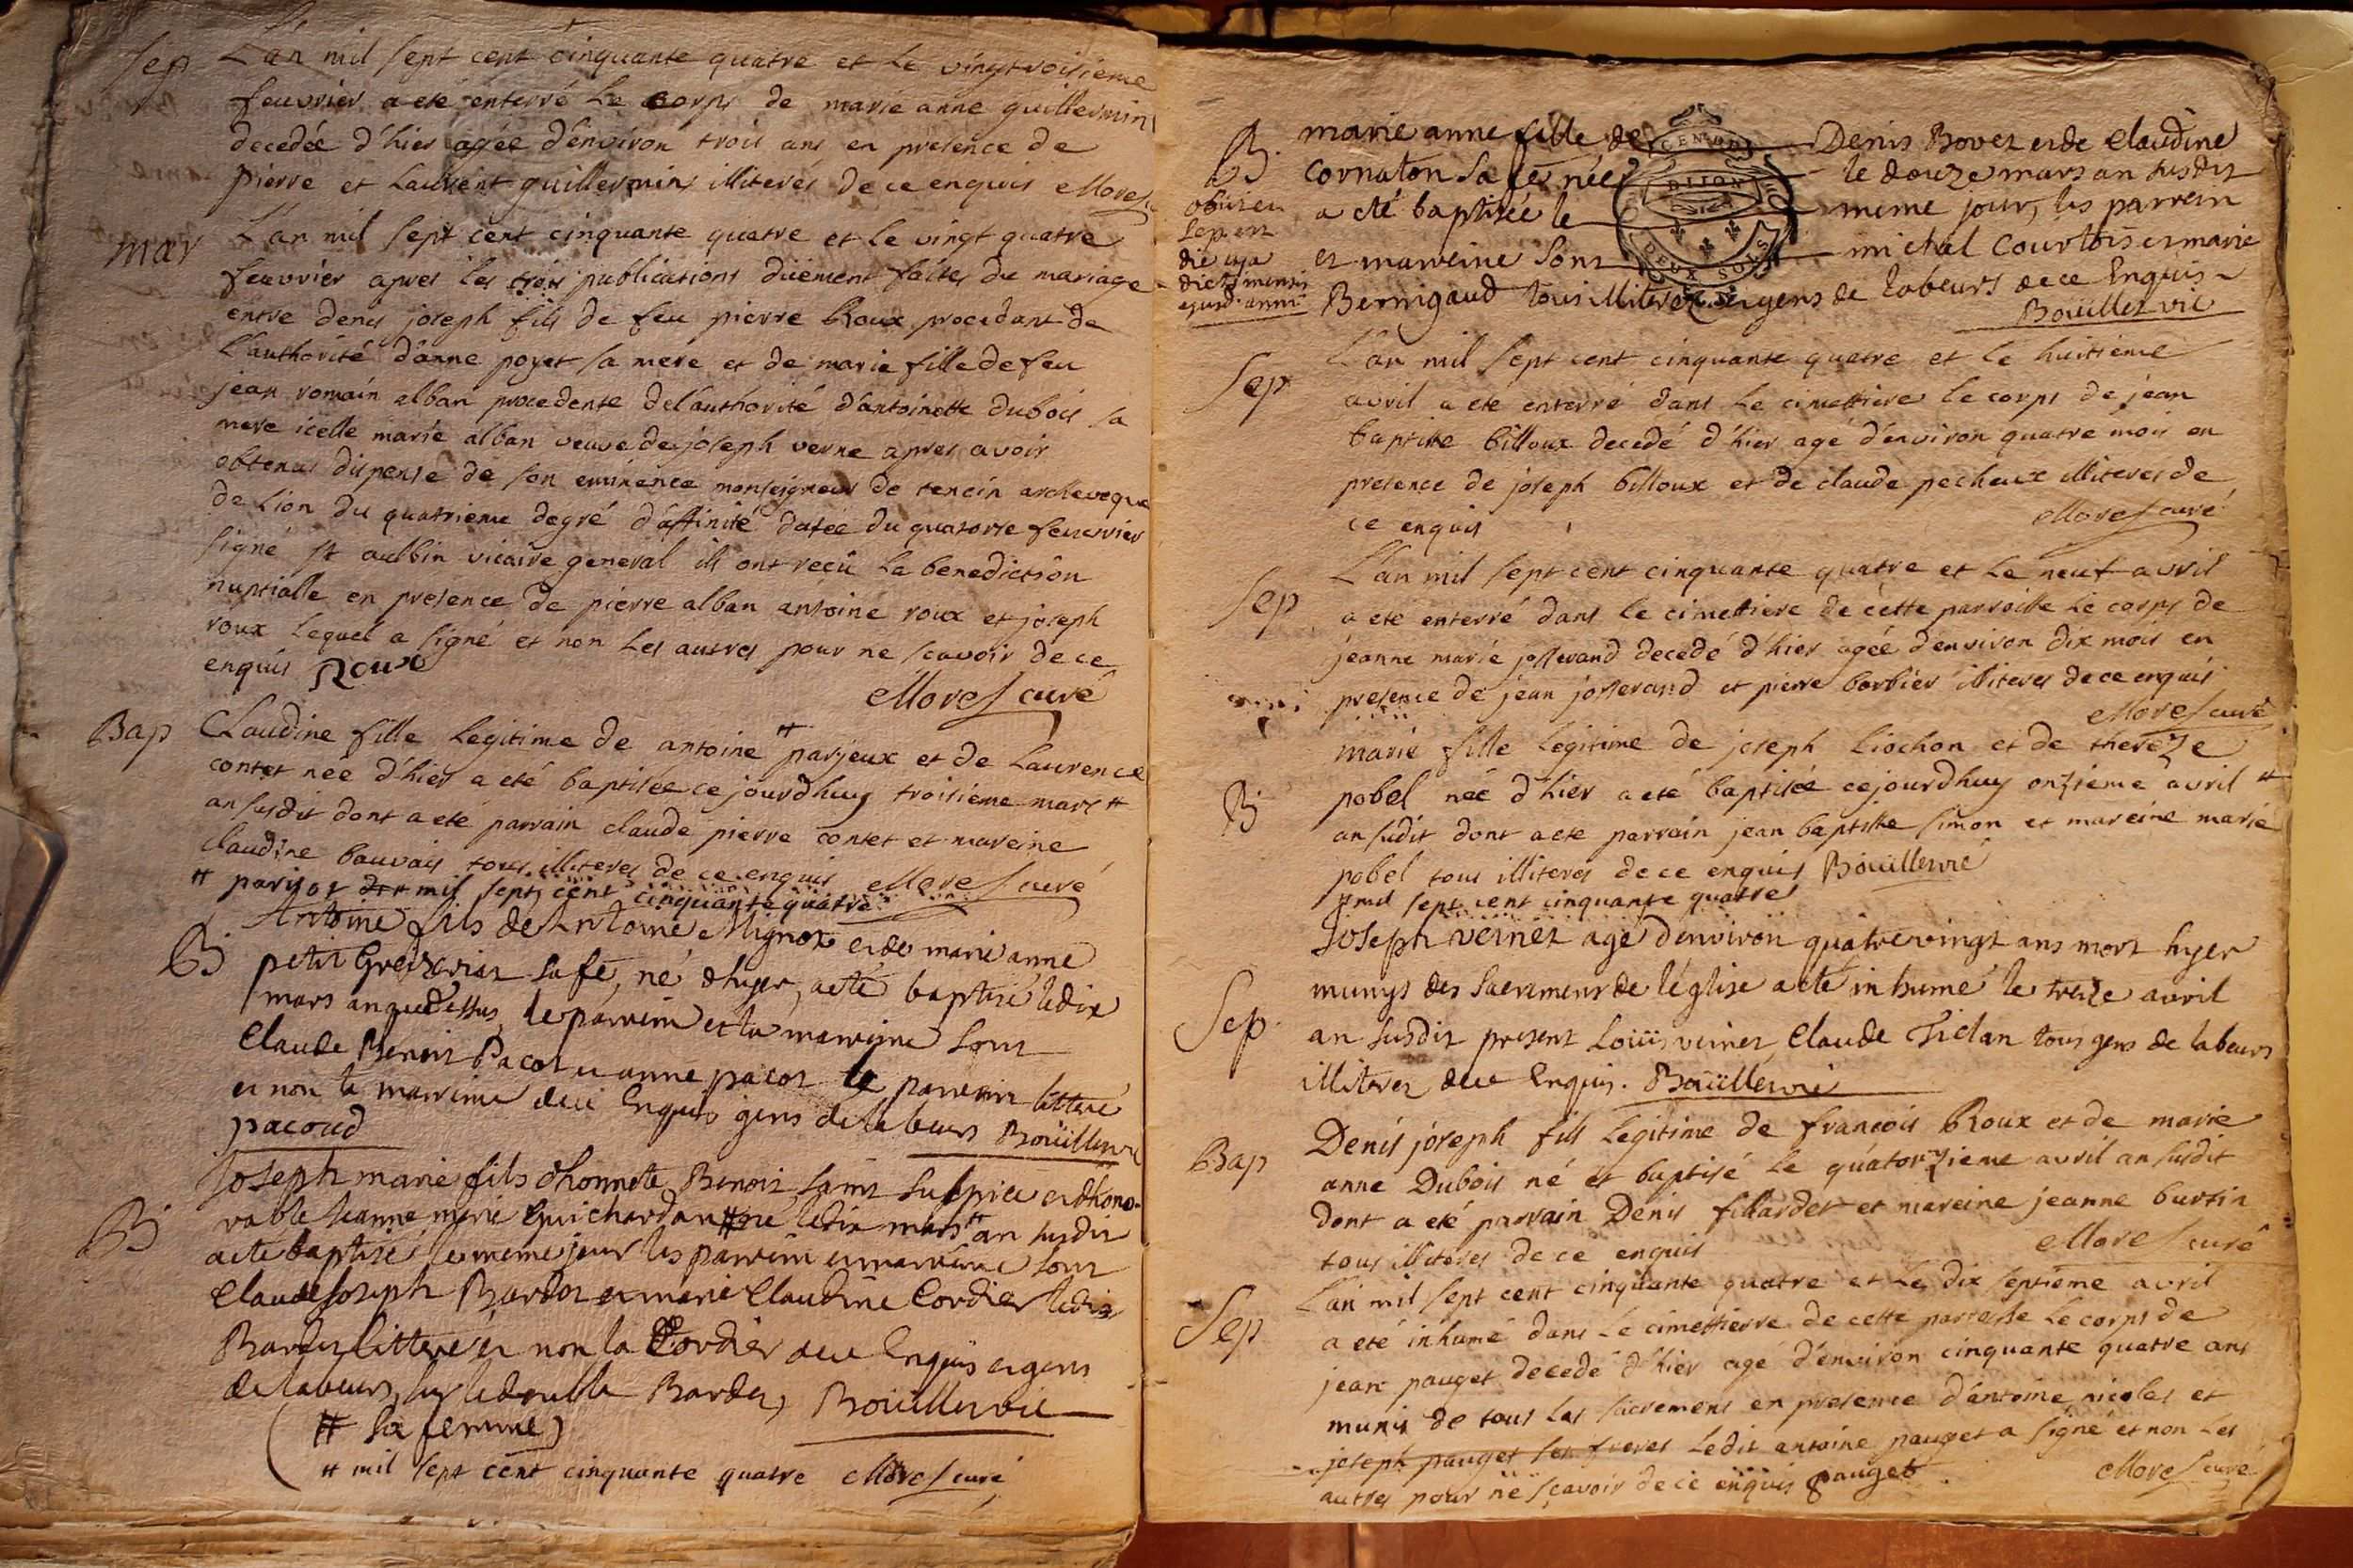 Sep L'an mil sept cent cinquante quatre et le vingtroisieme
feuvrier a eté enterré le corps de marie anne guillermin
decedée d'hier agée d'environ trois ans en presence de
pierre et laurent guillermin illiterés de ce enquis Morel
mar L'an mil sept cent cinquante quatre et le vingt quatre
feuvrier apres les trois publications düement faites du mariage
entre denis joseph fils de feu pierre Roux procedant de
l'authorité d'anne poyet sa mere et de marie fille de feu
jean romain alban procedente de l'authorité d'antoinette dubois sa
mere icelle marie alban veuve de joseph verne apres avoir
obtenus dispense de son eminence monseigneur de tencin archeveque
de Lion du quatrieme degré d'affinité datée du quatorse feuvrier
signé st aulbin vicaire general ils ont recû la benediction
nuptialle en presence de pierre alban antoine roux et joseph
roux lequel a signé et non les autres pour ne scavoir de ce
enquis Roux
Morel curé
Bap Claudine fille legitime de antoine # parjeux et de Laurence
contet née d'hier a eté baptisée ce jourdhuy troisieme mars #
an susdit dont a eté parrain claude pierre contet et mareine
claudine bauvais tous illiteres de ce enquis Morel curé
# mil sept cent cinquante quatre
B Antoine fils de Antoine Mignot et de marie anne
petit sa fe, né d'hyer, a eté baptisé le dix
mars an que dessus, le parrein et la marreine sont
Claude Benoit Pacot et anne pacot le parrein litteré
et non la marreine de ce Enquis gens de labeurs Boüillervie
pacoud
B Joseph marie fils d'honnete Benoit saint sulpice et d'hono-
rable Jeanne marie Guichardan # né le dix mars # an susdit
a ete baptisé le meme jour les parrein et marreine sont
Claude Joseph Bardet et marie Claudine Cordier ledit
Bardet litteré et non la Cordier de ce Enquis et gens
de labeurs, Bardet, Boüillervie
(# sa femme)
# mil sept cent cinquante quatre Morel curé
B marie anne fille de Denis Bovet et de Claudine
cornaton sa fe née le douze mars an susdit
a eté baptisée le meme jour, les parrein
et marreine sont michel Courtois et marie
Bernigaud tous illiterez et gens de labeurs de ce Enquis
Boüillervie
GEN DE
DIJON
DEUX SOLS
Sep L'an mil sept cent cinquante quatre et le huitieme
avril a ete enterré dans le cimettiere le corps de jean
baptiste billoux decedé d'hier agé d'environ quatre mois en
presence de joseph billoux et de claude pecheux illiteres de
ce enquis Morel curé
Sep L'an mil sept cent cinquante quatre et le neuf avril
a eté enterré dans le cimettiere de cette parroisse le corps de
jeanne marie josserand decedé d'hier agée d'environ dix mois en
presence de jean josserand et pierre barbier illiteres de ce enquis
Morel curé
B marie fille legitime de joseph Liochon et de thereze
pobel née d'hier a eté baptisée ce jourdhuy onzieme avril #
an sudit dont a ete parrain jean baptiste simon et mareine marie
pobel tous illiterés de ce enquis Boüillervie
# mil sept cent cinquante quatre
Sep Joseph vernet agé d'environ quatrevingt ans mort hyer
munys des sacremens de l'église a eté inhumé le treize avril
an susdit present Loüis vernet, Claude Ticlan tous gens de labeurs
illiterez de ce Enquis. Boüillervie
Bap Denis joseph fils legitime de francois Roux et de marie
anne Dubois né et baptisé le quatorzieme avril an susdit
dont a eté parrain Denis fillardet et mareine jeanne burtin
tous illiteres de ce enquis Morel curé
Sep L'an mil sept cent cinquante quatre et le dix septieme avril
a eté inhumé dans le cimettierre de cette parroisse le corps de
jean pauget decedé d'hier agé d'environ cinquante quatre ans
munis de tous les sacremens en presence d'antoine nicolas et
joseph pauget ses freres ledit antoine pauget a signé et non les
autres pour ne sçavoir de ce enquis pauget Morel curé